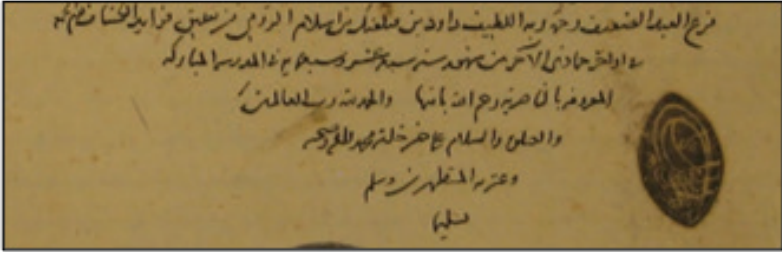 فرغ العبد الضعيف ربه اللطيف داود بن بن اسلام الرومي من تعليق فرايد
في اواخر جمادى الاخر من شهور سنه عشر وسبعمايه في المدرسه المباركه
المعروفة رحم الله بانيها والحمد لله رب العالمين
والصلوة والسلام على خير خلقه محمد وصحبه
وعترته المطهرين وسلم
تسليما